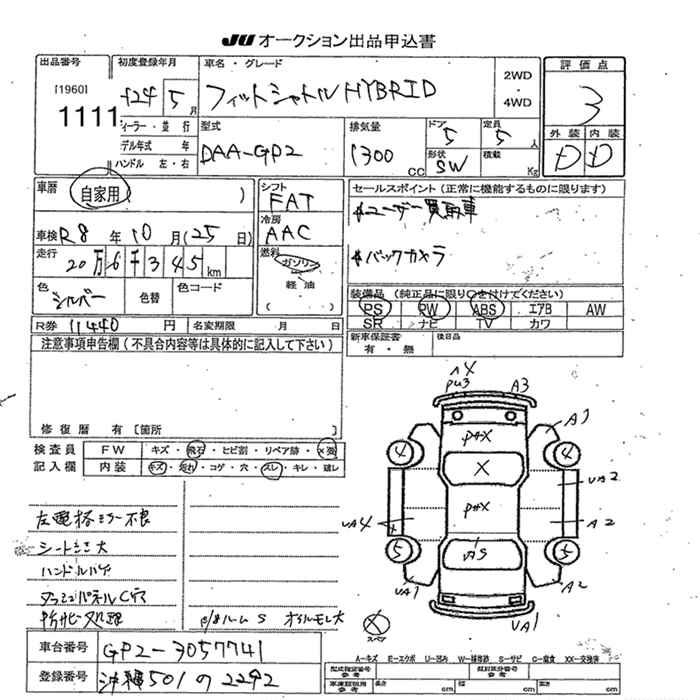 JU オークション出品申込書
出品番号
[1960]
1111
初度登録年月
H24 5 月
車名・グレード
フィットシャトル HYBRID
2WD
・
4WD
評価点
3
外装 内装
D D
ディーラー・並 行
モデル年式 年
ハンドル 左・右
型式
DAA-GP2
排気量
1300 CC
ドア 5
形状 SW
定員 5 人
積載 Kg
車暦 自家用 ( )
車検 R8 年 10 月 (25 日)
走行 20 万 6 千 3 4 5 km
色 シルバー
色替
色コード
シフト
FAT
冷房
AAC
燃料
ガソリン
・
軽油
( )
セールスポイント (正常に機能するものに限ります)
*ユーザー買取車
*バックカメラ
装備品 (純正品に限り○を付けてください)
PS PW ABS エアB AW
SR ナビ TV カワ
R券 11440 円
名変期限 月 日
新車保証書 有・無
後日品
注意事項申告欄 (不具合内容等は具体的に記入して下さい)
修復暦 有 [箇所 ]
検査員
記入欄
FW キズ・飛石・ヒビ割・リペア跡・×要
内装 キズ・汚れ・コゲ・穴・スレ・キレ・破レ
左電格ミラー不良
シートキズ大
ダッシュパネルCデア
e/gルームS オイルモレ大
車台番号 GP2-3057741
登録番号 沖縄501の2292
A4
PU3
A3
P#X
A1
4
4
X
UA2
P#X
UA4
A2
UAS
5
5
UA1
A2
UA1
X
スペア
A―キズ E―エクボ U―凹み W―補修跡 S―サビ C―腐食 XX―交換済
型式指定番号 参考
類別区分番号 参考
車庫証明用 参考
長さ cm
幅 cm
高さ cm